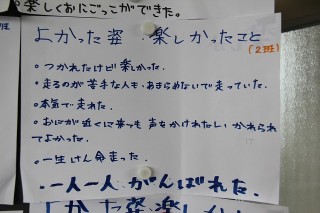 楽しくおにごっこができた。
よかった姿・楽しかったこと
(2班)
・つかれたけど楽しかった。
・走るのが苦手な人も、あきらめないで走っていた。
・本気で走れた。
・おにが近くに来ても声をかけれたし、かけられ
てよかった。
・一生けん命走った。
・一人一人がんばれた。
よかった姿・楽し